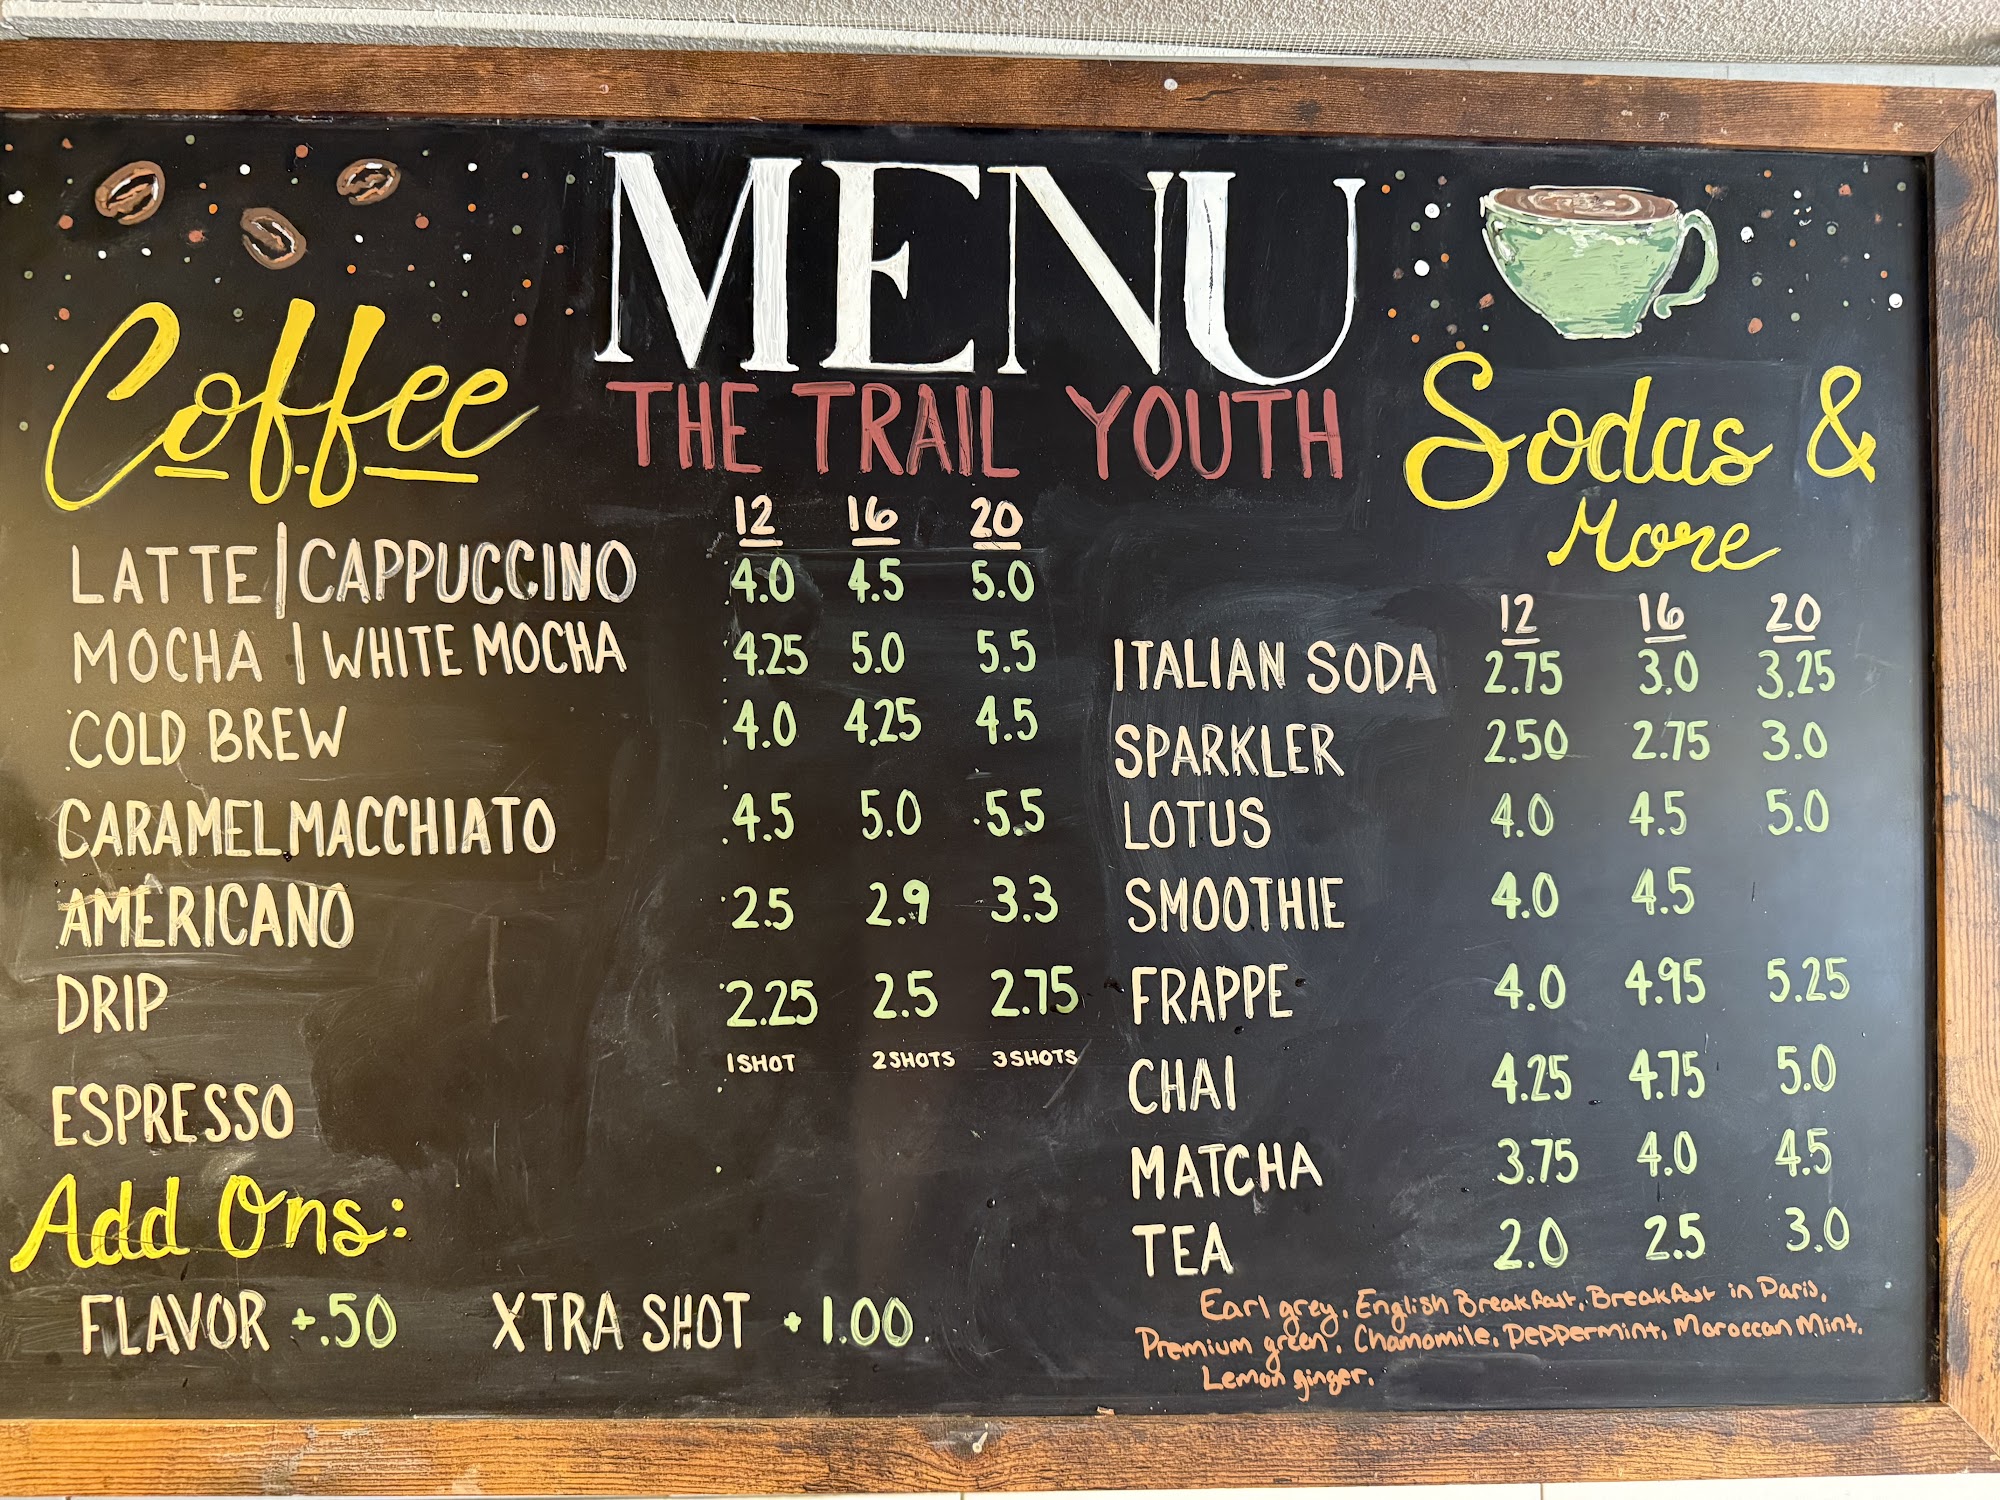 MENU
THE TRAIL YOUTH
Coffee
12 16 20
LATTE | CAPPUCCINO 4.0 4.5 5.0
MOCHA | WHITE MOCHA 4.25 5.0 5.5
COLD BREW 4.0 4.25 4.5
CARAMEL MACCHIATO 4.5 5.0 5.5
AMERICANO 2.5 2.9 3.3
DRIP 2.25 2.5 2.75
1 SHOT 2 SHOTS 3 SHOTS
ESPRESSO
Add Ons:
FLAVOR +.50 XTRA SHOT + 1.00
Sodas &
More
12 16 20
ITALIAN SODA 2.75 3.0 3.25
SPARKLER 2.50 2.75 3.0
LOTUS 4.0 4.5 5.0
SMOOTHIE 4.0 4.5
FRAPPE 4.0 4.95 5.25
CHAI 4.25 4.75 5.0
MATCHA 3.75 4.0 4.5
TEA 2.0 2.5 3.0
Earl grey, English Breakfast, Breakfast in Paris,
Premium green, Chamomile, Peppermint, Moroccan Mint,
Lemon ginger.